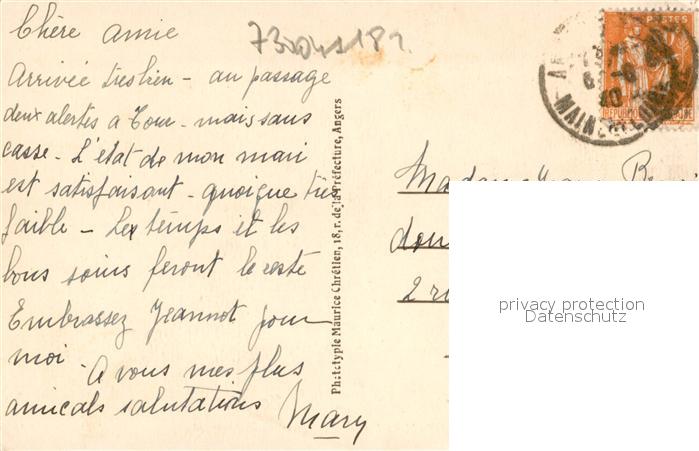 Chère amie
73204818
Arrivée très bien - au passage
deux alertes a Tour - mais sans
casse - L'état de mon mari
est satisfaisant - quoique très
faible - Le temps et les
bons soins feront le reste
Embrassez Jeannot pour
moi - A vous mes plus
amicals salutations
Mary
Phototypie Maurice Chrétien, 18, r. de la Préfecture, Angers
POSTES
MAINE-ET-LOIRE
Madame
2
privacy protection
Datenschutz